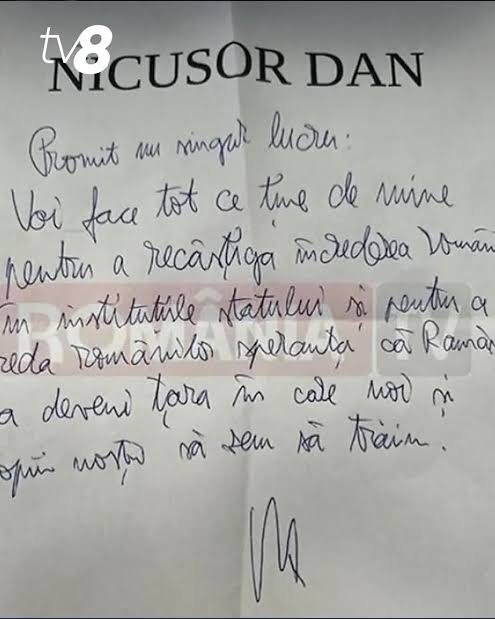 tv8
NICUSOR DAN
Promit un singur lucru:
Voi face tot ce ține de mine
pentru a recâștiga încrederea român
în instituțiile statului și pentru a
reda românilor speranța că Român
a deveni țara în care noi și
opiii noștri să vrem să trăim.
ROMÂNIA TV